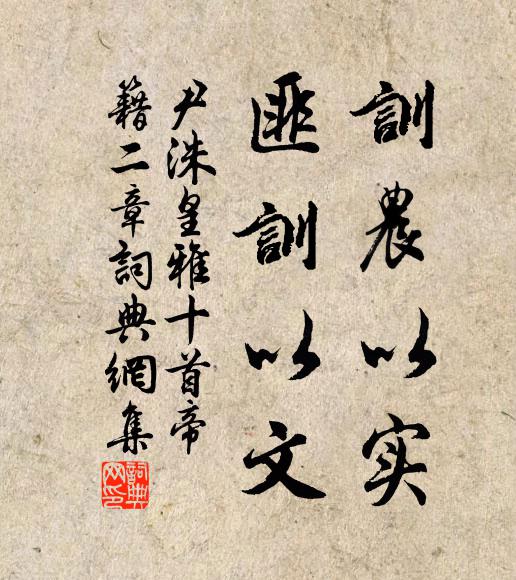 訓農以实
匪訓以文
尹洙皇雅十首帝
籍二章詞典網集
詞典网印